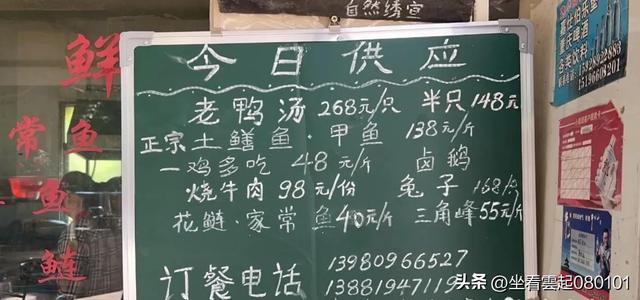 自然绣宣
今日供应
老鸭汤 268元/只 半只148元
正宗土鳝鱼·甲鱼 138元/斤
一鸡多吃 48元/斤 卤鹅
烧牛肉 98元/份 兔子 168/只
花鲢·家常鱼40元/斤 三角峰55元/斤
订餐电话 13980966527
13881947119
鲜
鱼
鱼
鲢
常
重庆啤酒
各类饮料
头条 @坐看雲起080101